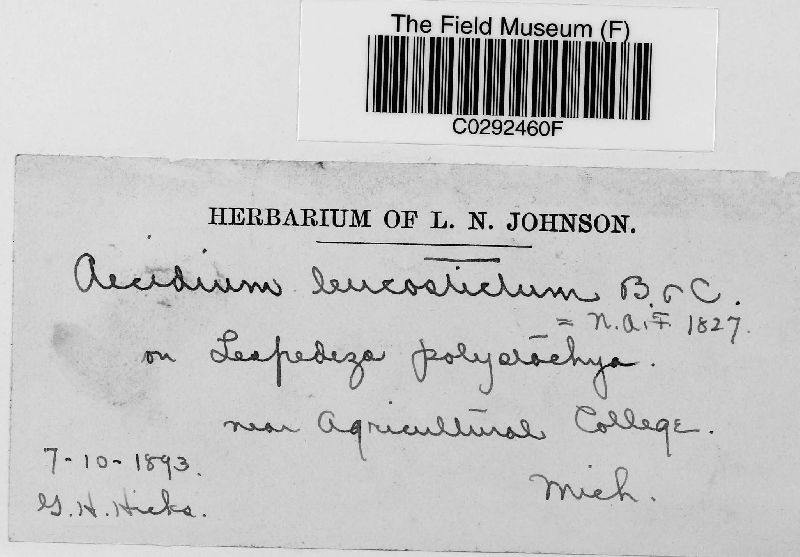 The Field Museum (F)
C0292460F
HERBARIUM OF L. N. JOHNSON.
Aecidium leucostictum B. & C.
= N.A.F. 1827.
on Lespedeza polystachya.
near Agricultural College.
7-10-1893.
Mich.
G. H. Hicks.